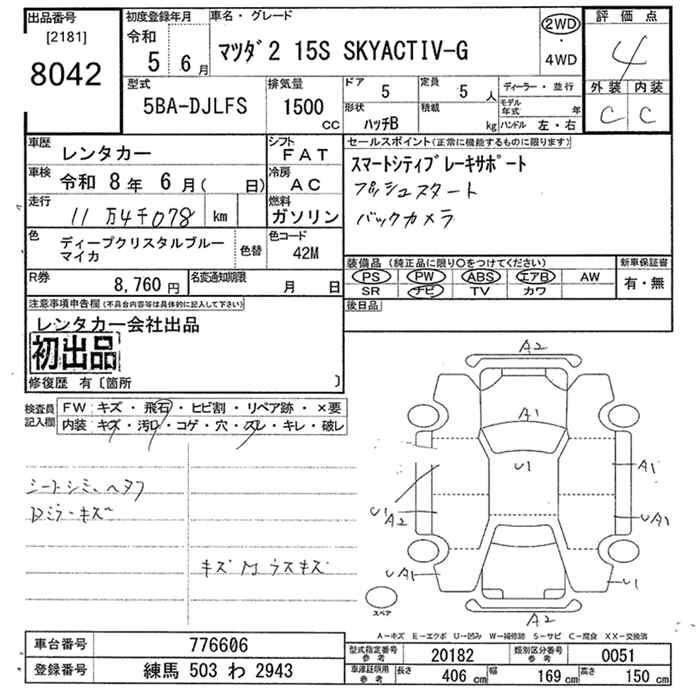 出品番号
[2181]
8042
初度登録年月
令和
5 6月
車名・グレード
マツダ2 15S SKYACTIV-G
2WD
・
4WD
評価点
4
外装 内装
C C
型式
5BA-DJLFS
排気量
1500
CC
ドア
5
形状
ハッチB
定員
5 人
積載
kg
ディーラー・並行
モデル年式 年
ハンドル 左・右
車歴
レンタカー
シフト
FAT
車検
令和 8年 6月( 日)
冷房
AC
走行
11万4千078 km
燃料
ガソリン
色
ディープクリスタルブルー
マイカ
色替
色コード
42M
R券
8,760 円
名変通知期限
月 日
セールスポイント(正常に機能するものに限ります)
スマートシティブレーキサポート
プッシュスタート
バックカメラ
装備品(純正品に限り○をつけてください)
PS PW ABS エアB AW
SR ナビ TV カワ
新車保証書
有・無
後日品
注意事項申告欄(不具合内容等は具体的に記入して下さい)
レンタカー会社出品
初出品
修復歴 有〔箇所 〕
検査員
記入欄
FW キズ・飛石・ヒビ割・リペア跡・×要
内装 キズ・汚れ・コゲ・穴・スレ・キレ・破レ
シートシミ、ヘタリ
Dミラーキズ
キズ 有 ウスキズ
A2
A1
U1
A1
U1
A2
UA1
UA1
U1
A2
スペア
A－キズ E－エクボ U－凹み W－補修跡 S－サビ C－腐食 XX－交換済
車台番号
776606
登録番号
練馬 503 わ 2943
型式指定番号
参考
20182
類別区分番号
参考
0051
車庫証明用
参考
長さ
406 cm
幅
169 cm
高さ
150 cm